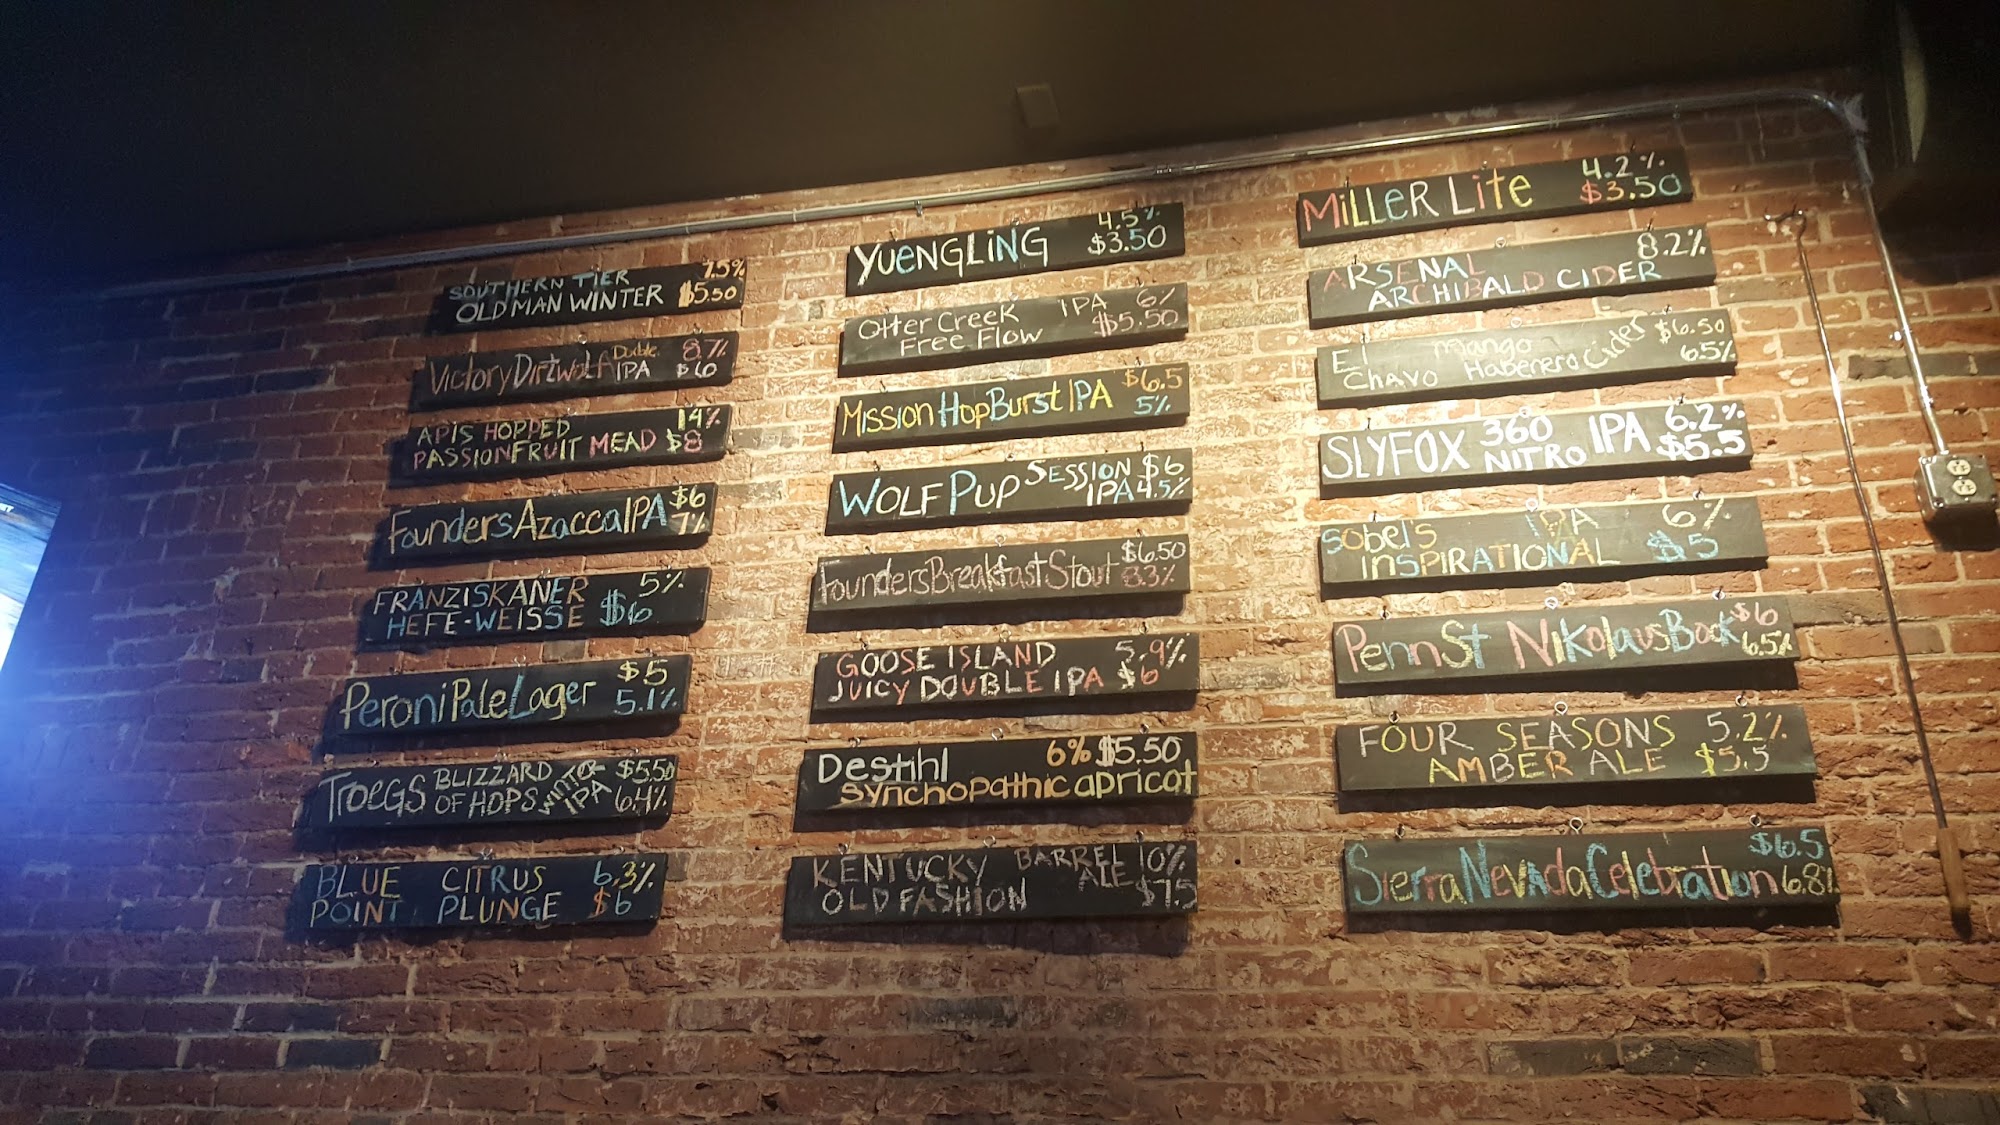 SOUTHERN TIER 7.5%
OLD MAN WINTER $5.50
Victory Dirtwolf Double IPA 8.7% $6
APIS HOPPED 14%
PASSIONFRUIT MEAD $8
Founders Azacca IPA $6 7%
FRANZISKANER 5%
HEFE-WEISSE $6
Peroni Pale Lager $5 5.1%
TROEGS BLIZZARD OF HOPS WINTER IPA $5.50 6.4%
BLUE CITRUS 6.3%
POINT PLUNGE $6
YUENGLING 4.5% $3.50
Otter Creek IPA 6%
Free Flow $5.50
Mission Hop Burst IPA $6.5 5%
WOLF PUP SESSION IPA $6 4.5%
Founders Breakfast Stout $6.50 8.3%
GOOSE ISLAND 5.9%
JUICY DOUBLE IPA $6
Destihl 6% $5.50
synchopathic apricot
KENTUCKY BARREL ALE 10%
OLD FASHION $7.5
MiLLeR Lite 4.2% $3.50
ARSENAL 8.2%
ARCHIBALD CIDER
El mango $6.50
Chavo Habenero Cider 6.5%
SLYFOX 360 NITRO IPA 6.2% $5.5
sobel's IPA 6%
INSPIRATIONAL $5
Penn St Nikolaus Bock $6 6.5%
FOUR SEASONS 5.2%
AMBER ALE $5.5
Sierra Nevada Celebration $6.5 6.8%